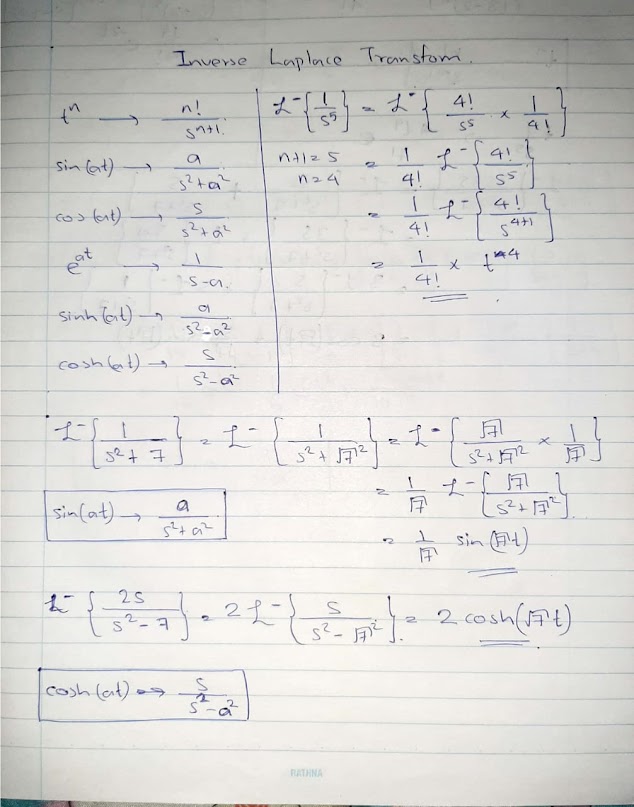 Inverse Laplace Transfom.
tⁿ → n!/sⁿ⁺¹
sin(at) → a/(s²+a²)
cos(at) → s/(s²+a²)
eᵃᵗ → 1/(s-a)
sinh(at) → a/(s²-a²)
cosh(at) → s/(s²-a²)
ℒ⁻{1/s⁵} = ℒ⁻{4!/s⁵ × 1/4!}
n+1=5 = 1/4! ℒ⁻{4!/s⁵}
n=4
= 1/4! ℒ⁻{4!/s⁴⁺¹}
= 1/4! × t⁴
ℒ⁻{1/(s²+7)} = ℒ⁻{1/(s²+√7²)} = ℒ⁻{√7/(s²+√7²) × 1/√7}
= 1/√7 ℒ⁻{√7/(s²+√7²)}
sin(at) → a/(s²+a²)
= 1/√7 sin(√7t)
ℒ⁻{2s/(s²-7)} = 2ℒ⁻{s/(s²-√7²)} = 2 cosh(√7t)
cosh(at) → s/(s²-a²)
RATHNA